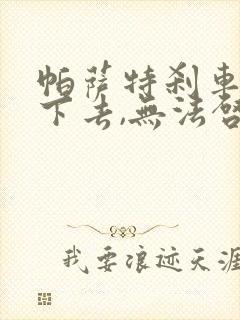 帕薩特刹車
下去,無法啓
我要浪迹天涯